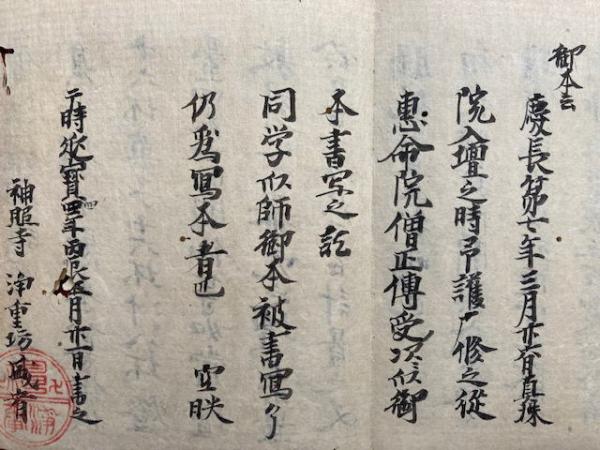 御本云
慶長第七年三月廿日真珠
院入壇之時弔護广修之従
惠命院僧正傳受次以御
本書写之訖
同学以師御本被書寫了
仍爲寫本者也 空映
于時延寳四年丙辰五月廿一日書之
神照寺 浄重坊